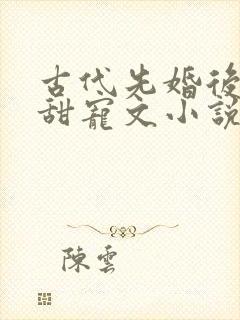 古代先婚後
甜寵文小說
陳雲